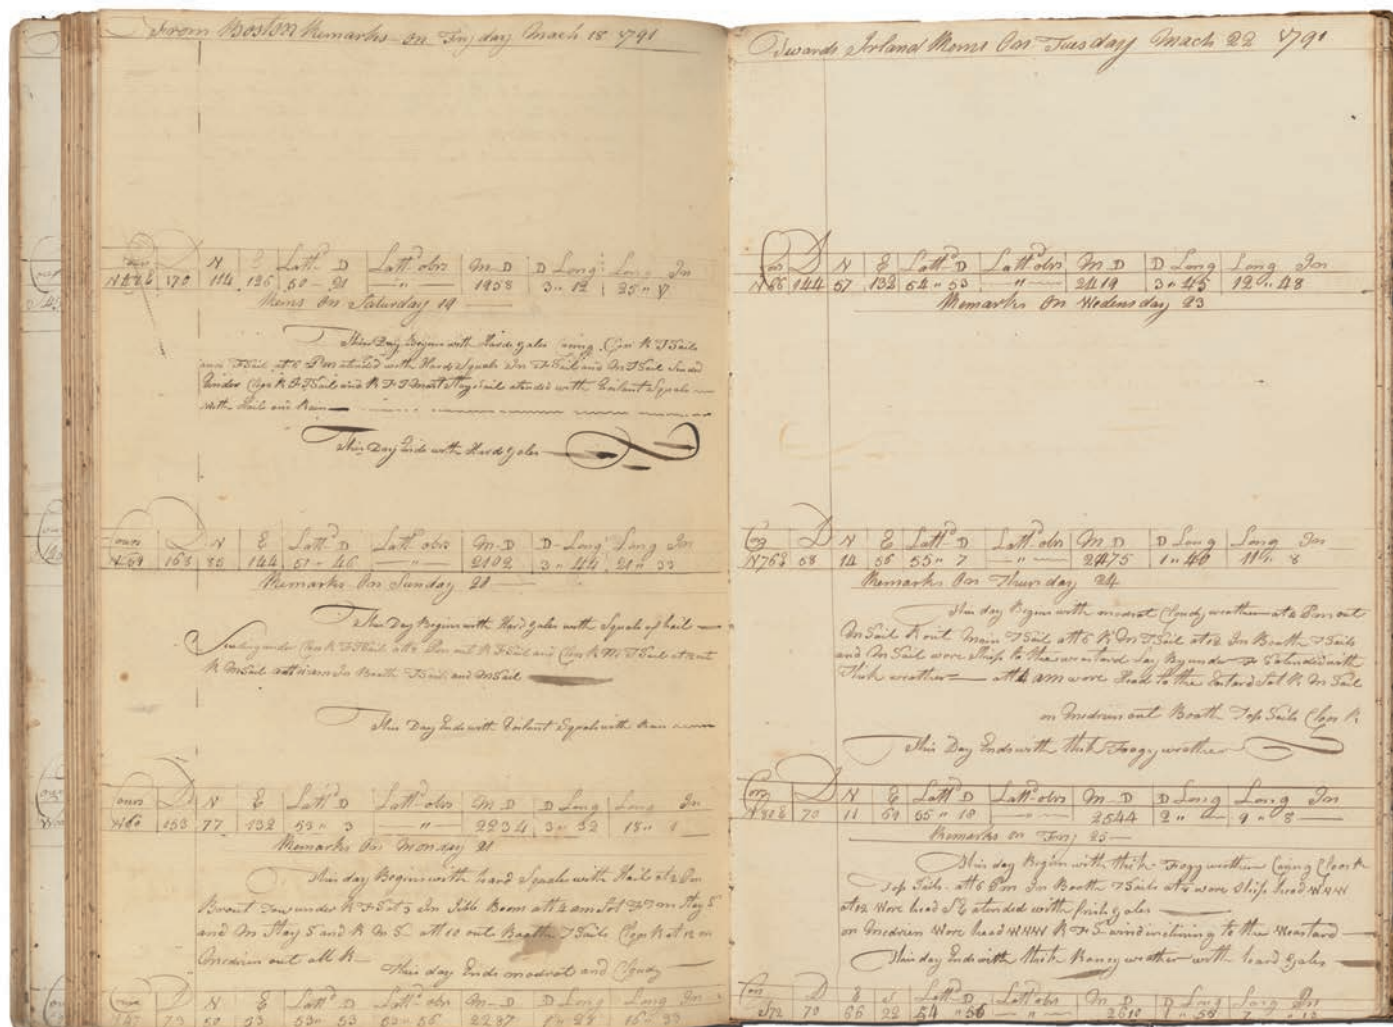 From Boston Remarks on Fryday Mach 18 1791
N D Lattd D Lattd obs M D D Long Long In
170 114 126 50 - 21 - " - 1958 3 " 12 25 "
Rems On Saturday 19
This Day Begins with Hard gales R T Sails
and F Sail at 6 Pm atended with Hard Squals In F Sail and M T Sail
under R F T Sail and R F T Mast Stay Sail atended with Squals
with Hail and Rain
This Day Ends with Hard gales
Cours D N E Lattd D Lattd obs M D D Long Long In
168 85 144 51 - 46 - " - 2102 3 " 44 21 " 33
Remarks On Sunday 20
This Day Begins with Hard gales with Squals of hail
under R F T Sail at Pm out R F Sail and R M T Sail at out
R M Sail In Booth T Sails and M Sail
This Day Ends with Squals with Rain
Cours D N E Lattd D Lattd obs M D D Long Long In
N 60 153 77 132 53 " 3 - " - 2234 3 " 32 18 " 1
Remarks On Monday 21
This day Begins with hard Squals with Hail at 2 Pm
under R F S at 3 In Jibb Boom att 4 am Sot Stay S
and M Stay S and R M S att 10 out Booth T Sails R at 12 on
Medien out all R
This day Ends modrat and Cloudy
D N E Lattd D Lattd obs M D D Long Long In
73 50 53 53 " 53 53 " 56 2287
Towards Irland Rems On Tuesday Mach 22 1791
Cors D N E Lattd D Lattd obs M D D Long Long In
N 66 144 57 132 54 " 53 - " - 2419 3 " 45 12 " 48
Remarks On Wedensday 23
Cors D N E Lattd D Lattd obs M D D Long Long In
N 76 E 58 14 56 55 " 7 - " - 2475 1 " 40 11 " 8
Remarks On Thursday 24
This day Begins with modrat Cloudy weather at 2 Pm out
M Sail R out Main T Sail att 6 R M T Sail at 12 In Booth T Sails
and M Sail wore Ship to the westard Lay By under F S atended with
Thick weather att 4 am wore Head to the Eastard Sot R M Sail
on Medien out Booth Top Sails Clos R
This Day Ends with thik Foogy weather
Cors D N E Lattd D Lattd obs M D D Long Long In
N 80 E 70 11 69 55 " 18 - " - 2544 2 " - 9 " 8
Remarks on Fryj 25
This day Begins with thik Foogy weather Clos R
Top Sails att 6 Pm In Booth T Sails at wore Ship head WNW
at 12 Wore head S E atended with frish gales
on Medien Wore head WNW R F S wind inclining to the Westard
This day Ends with thik Raney weather with hard gales
Cors D E S Lattd D Lattd obs M D D Long Long In
S 72 70 66 22 54 " 56 - " - 2610 1 " 56 7 " 12